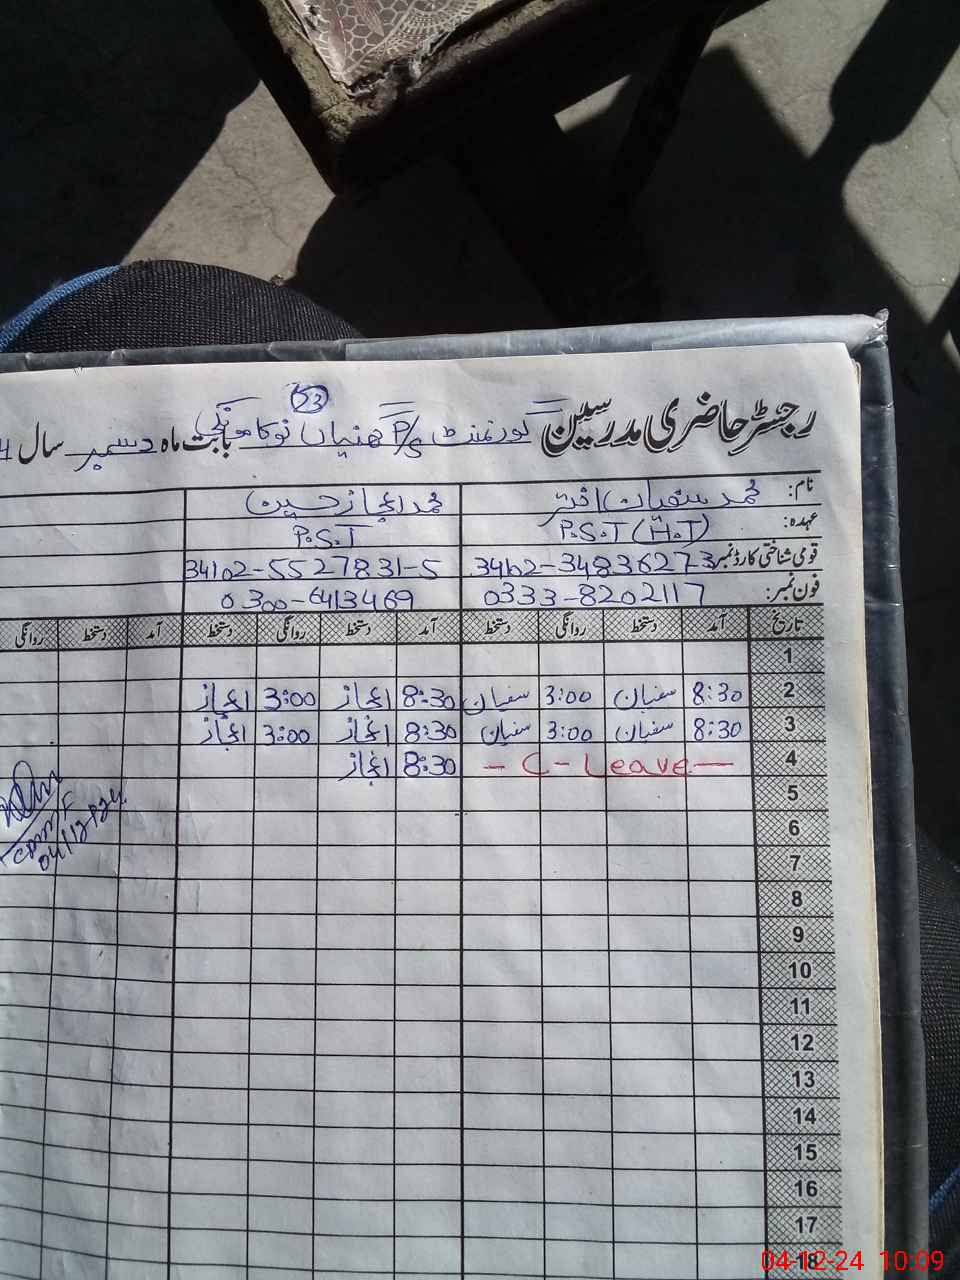 53
رجسٹر حاضری مدرسین گورنمنٹ P/S بابت ماہ دسمبر سال
نام: محمد سفیان اختر محمد اعجاز حسین
عہدہ: P.S.T (H.T) P.S.T
قومی شناختی کارڈ نمبر 34102-34836273 34102-5527831-5
فون نمبر: 0333-8202117 0300-6413469
تاریخ آمد دستخط روانگی دستخط آمد دستخط روانگی دستخط آمد دستخط روانگی
1
2 8:30 سفیان 3:00 سفیان 8:30 اعجاز 3:00 اعجاز
3 8:30 سفیان 3:00 سفیان 8:30 اعجاز 3:00 اعجاز
4 - C - Leave - 8:30 اعجاز
5
04/12/24
6
7
8
9
10
11
12
13
14
15
16
17
18
04-12-24 10:09